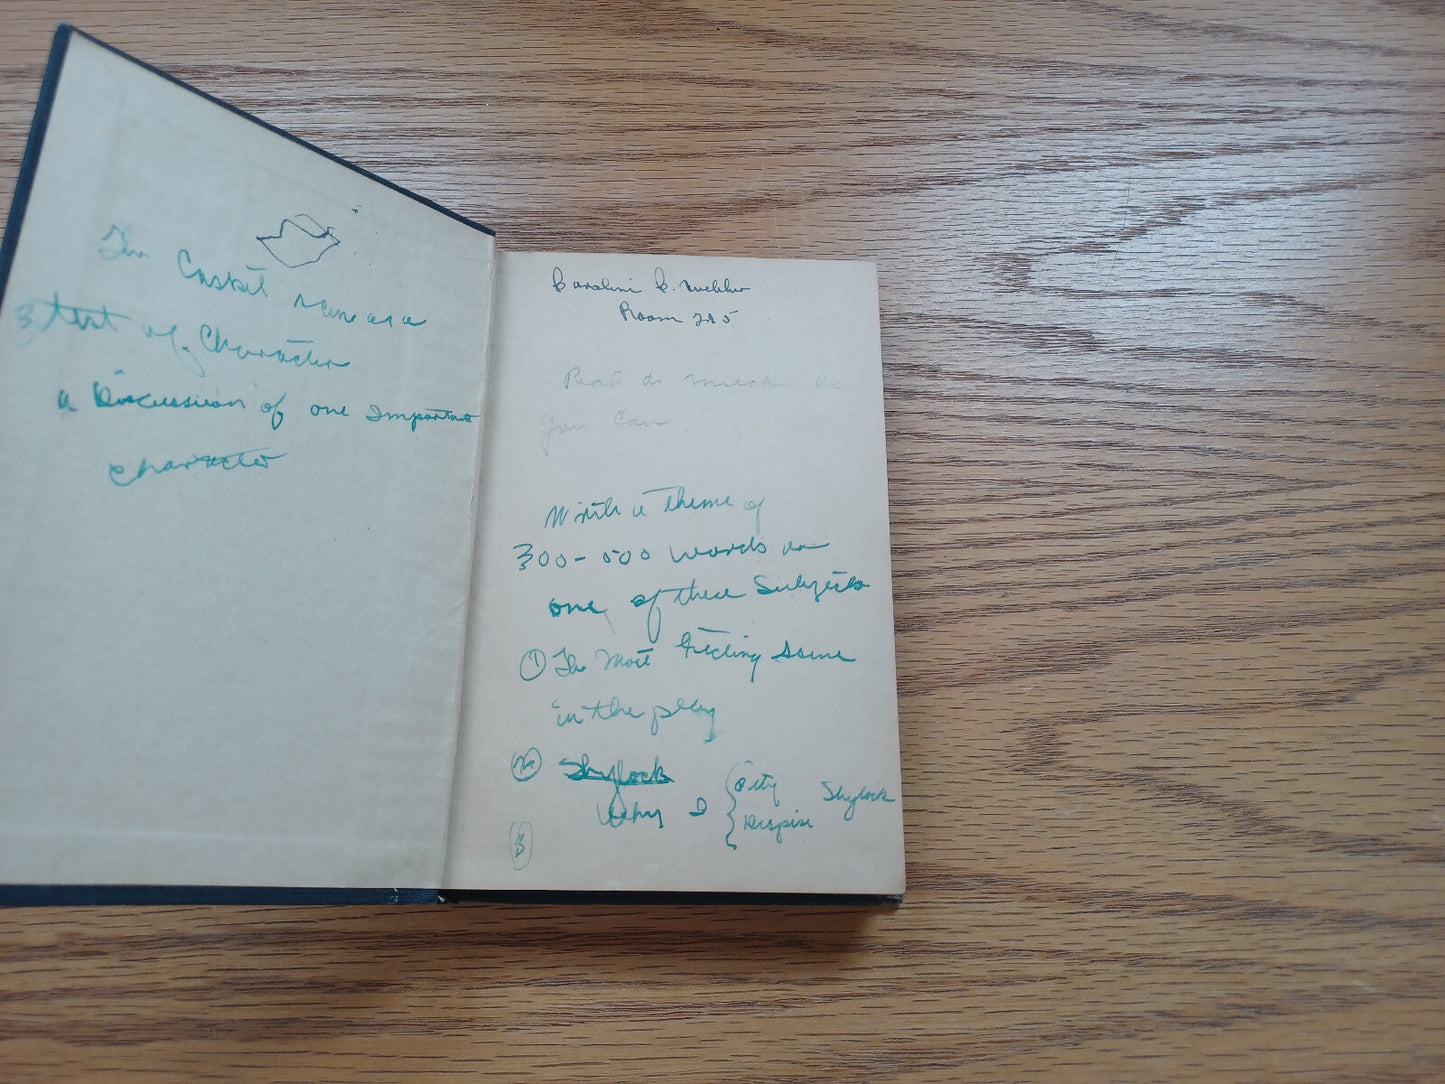 The Casket scene as a
3 test of Character
a Discussion of one Important
character
Caroline C. Webber
Room 215
Read as much as
you can
Write a theme of
300-500 words on
one of these Subjects
① The Most Exciting Scene
in the play
② Shylock
Why I { Pity Shylock
Despise
③